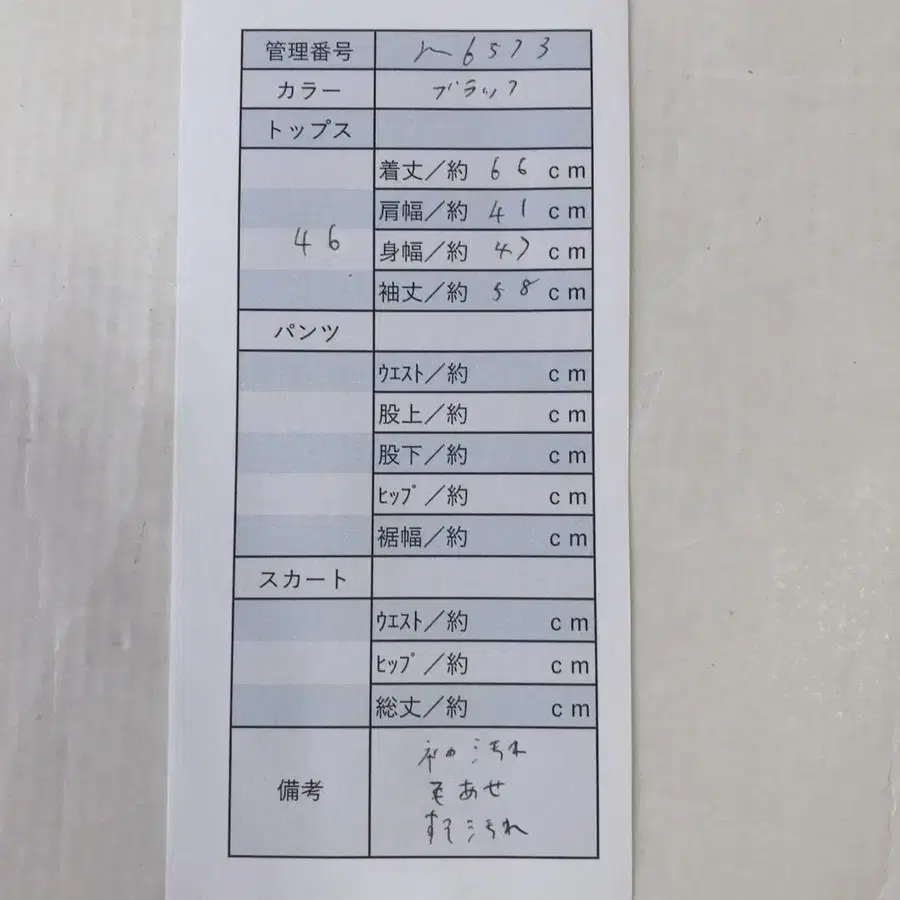 管理番号 m6573
カラー ブラック
トップス
46
着丈／約 66 cm
肩幅／約 41 cm
身幅／約 47 cm
袖丈／約 58 cm
パンツ
ｳｴｽﾄ／約 cm
股上／約 cm
股下／約 cm
ﾋｯﾌﾟ／約 cm
裾幅／約 cm
スカート
ｳｴｽﾄ／約 cm
ﾋｯﾌﾟ／約 cm
総丈／約 cm
備考
袖汚れ
色あせ
すそ汚れ